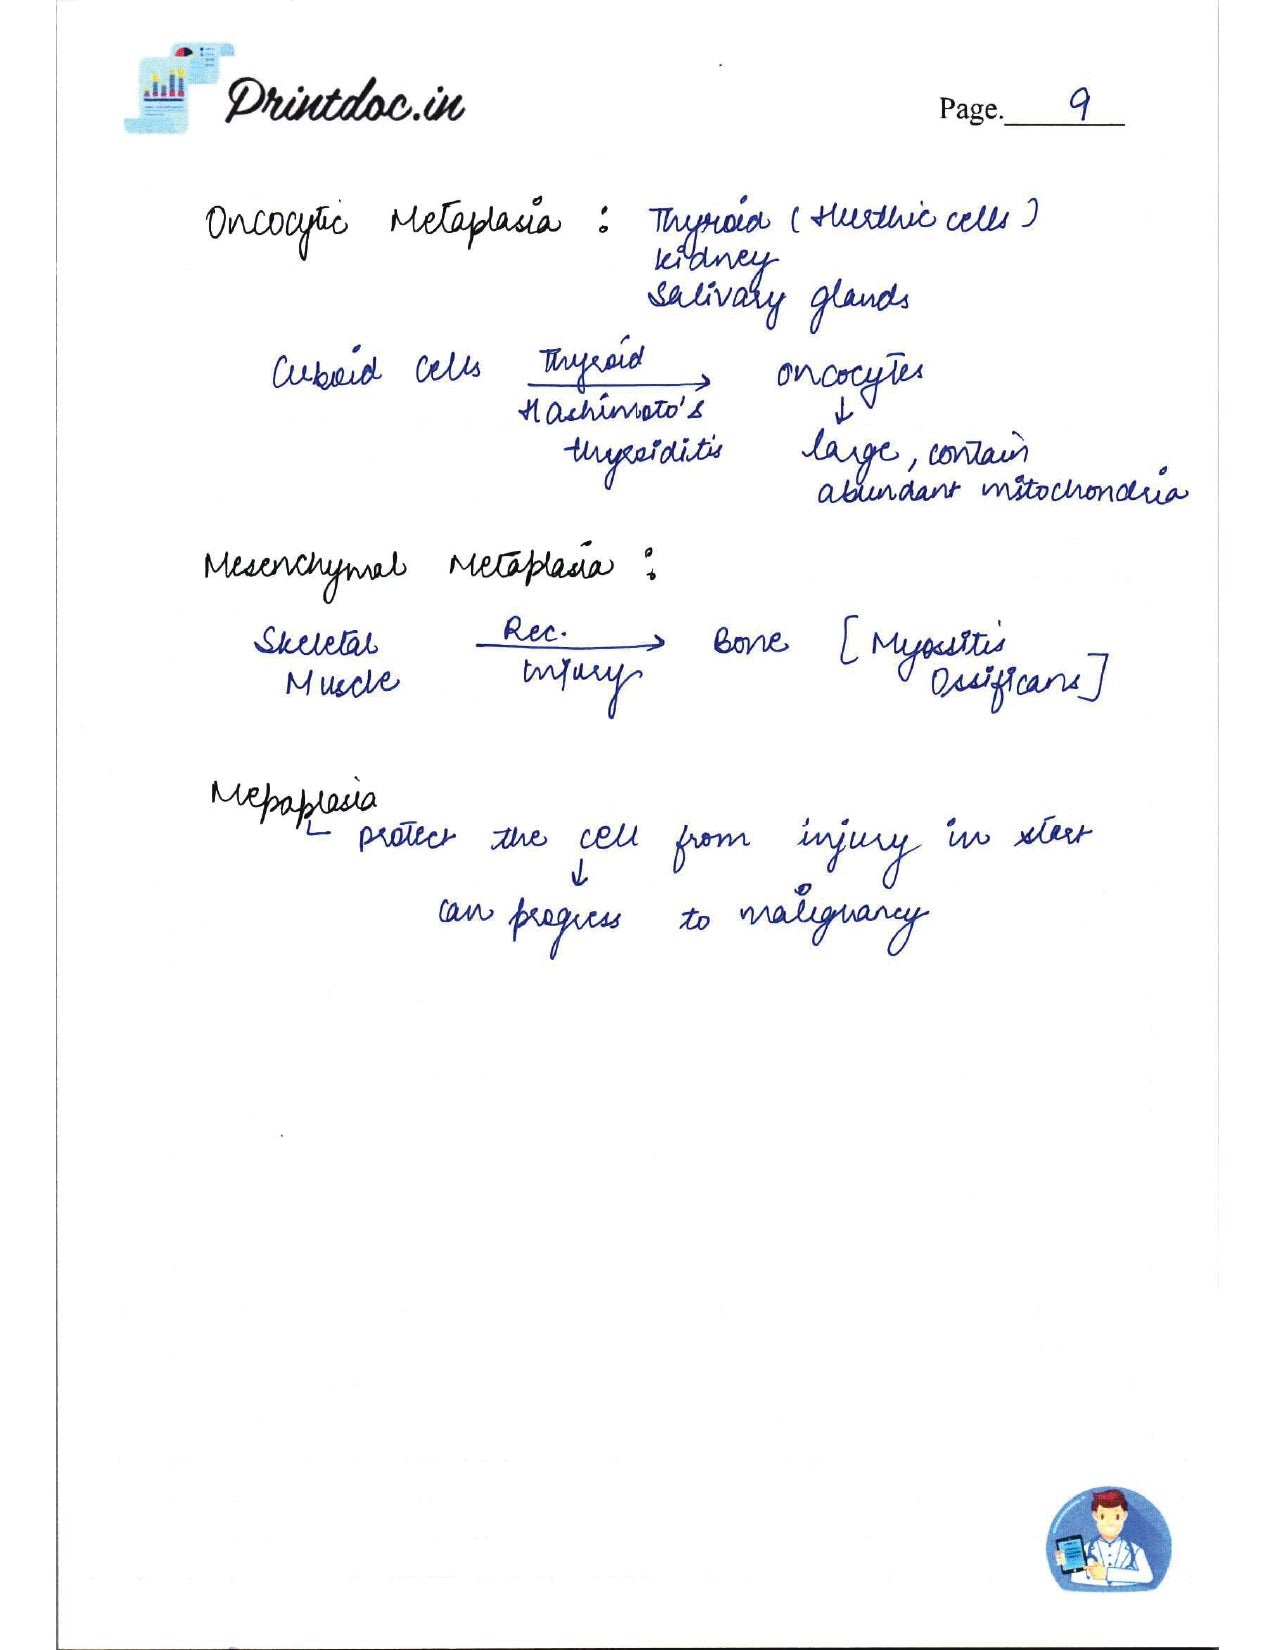 Printdoc.in
Page. 9
Oncocytic Metaplasia : Thyroid (Hurthic cells)
Kidney
Salivary glands
Cuboid cells Thyroid → oncocytes
Hashimoto's thyroiditis
↓
large, contain
abundant mitochondria
Mesenchymal Metaplasia :
Skeletal Muscle Rec. Injury → Bone [Myossitis Ossificans]
Mepaplasia
protect the cell from injury in start
↓
can progress to malignancy